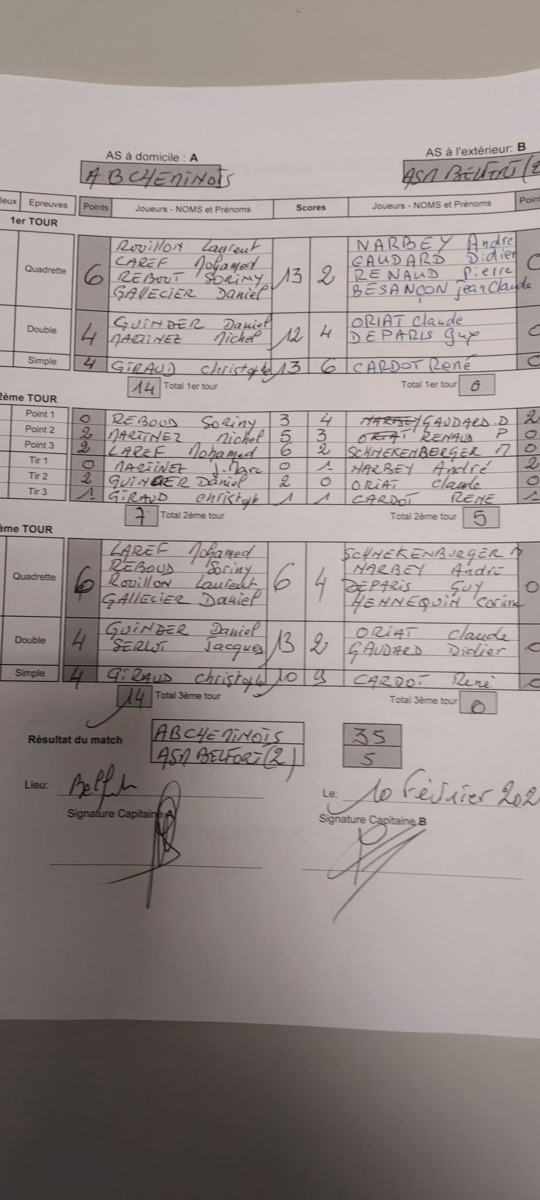 AS à domicile : A AS à l'extérieur: B
ABCHEMINOIS ASM BELFORT(2
Jeux Epreuves Points Joueurs - NOMS et Prénoms Scores Joueurs - NOMS et Prénoms Poin
1er TOUR
Quadrette 6 ROUILLON Laurent 13 2 NARBEY Andre 0
CAREF Mohamed GAUDARD Didier
REBOUT SORINY RENAUD Pierre
GALLECIER Daniel BESANÇON Jean Claude
Double 4 GUINDER Daniel 12 4 ORIAT Claude 0
MARTINEZ Michel DEPARIS Guy
Simple 4 GIRAUD Christophe 13 6 CARDOT René 0
14 Total 1er tour Total 1er tour 0
2ème TOUR
Point 1 0 REBOUD SORINY 3 4 NARBEY GAUDARD.D 2
Point 2 2 MARTINEZ Michel 5 3 ORIAT RENAUD P 0
Point 3 2 LAREF Mohamed 6 2 SCHNEKENBERGER M 0
Tir 1 0 MARTINEZ J.Marc 0 1 NARBEY André 2
Tir 2 2 GUINDER Daniel 2 0 ORIAT Claude 0
Tir 3 1 GIRAUD Christoph 1 1 CARDOT RENE 1
7 Total 2ème tour Total 2ème tour 5
ème TOUR
Quadrette 6 LAREF Mohamed 6 4 SCHNEKENBURGER M 0
REBOUD Soriny NARBEY André
ROUILLON Laurent DEPARIS GUY
GALLECIER Daniel HENNEQUIN Corine
Double 4 GUINDER Daniel 13 2 ORIAT Claude 0
SERLOT Jacques GAUDARD Didier
Simple 4 GIRAUD Christoph 10 9 CARDOT René 0
14 Total 3ème tour Total 3ème tour 0
Résultat du match ABCHEMINOIS 35
ASM BELFORT(2) 5
Lieu: Belfort Le: 10 Février 202
Signature Capitaine A Signature Capitaine B